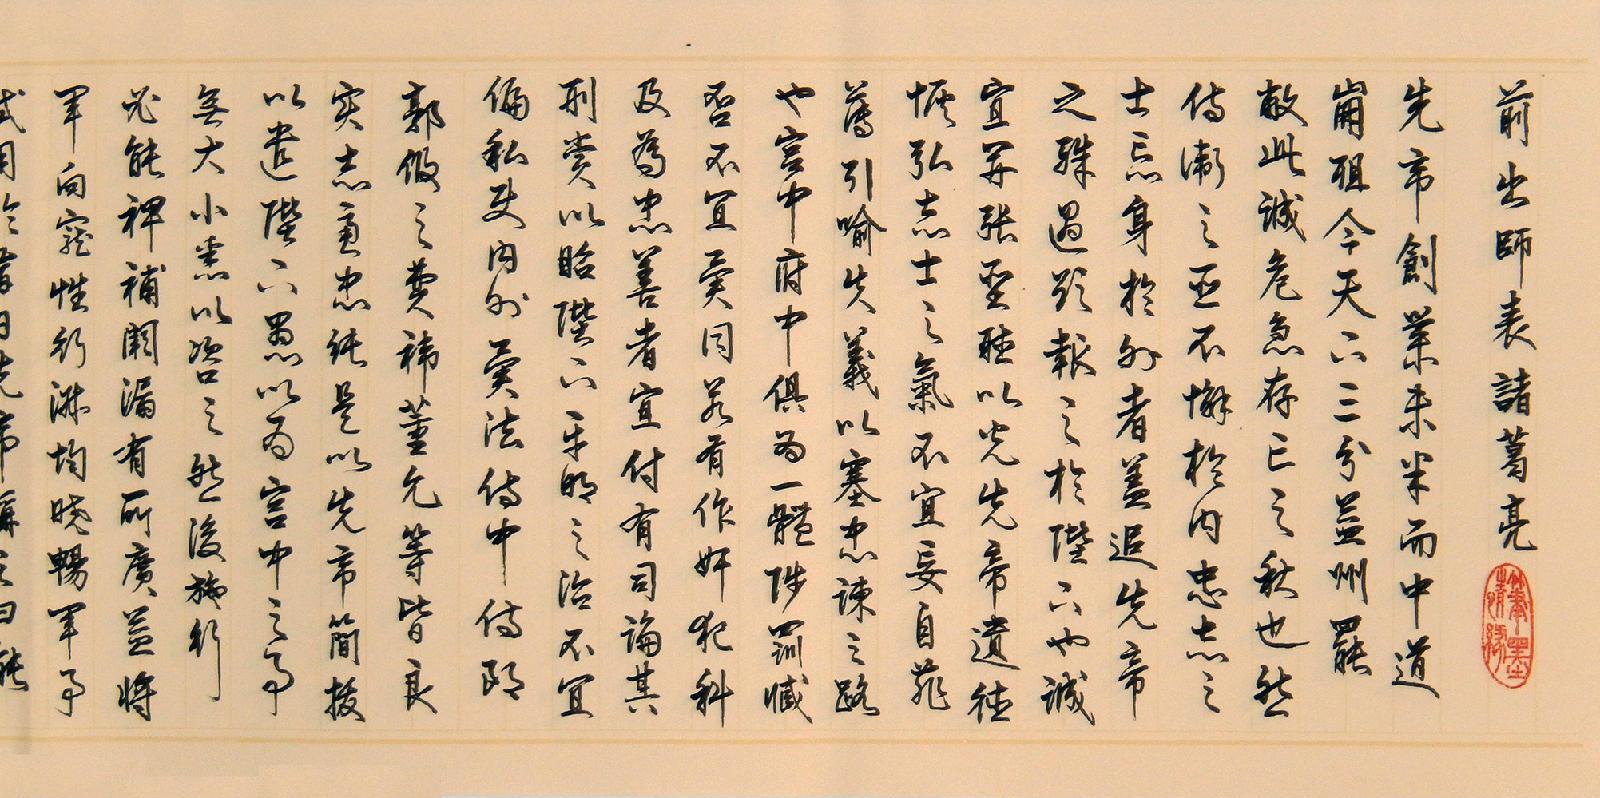 前出師表 諸葛亮
先帝創業未半而中道
崩殂今天下三分益州罷
敝此誠危急存亡之秋也然
侍衛之臣不懈於内忠志之
士忘身於外者蓋追先帝
之殊遇欲報之於陛下也誠
宜開張聖聽以光先帝遺德
恢弘志士之氣不宜妄自菲
薄引喻失義以塞忠諫之路
也宮中府中俱為一體陟罰臧
否不宜異同若有作奸犯科
及為忠善者宜付有司論其
刑賞以昭陛下平明之治不宜
偏私使内外異法侍中侍郎
郭攸之費禕董允等皆良
实志慮忠純是以先帝簡拔
以遺陛下愚以為宮中之事
無大小悉以咨之然後施行
必能裨補闕漏有所廣益將
軍向寵性行淑均曉暢軍事
試用於昔日先帝稱之曰能